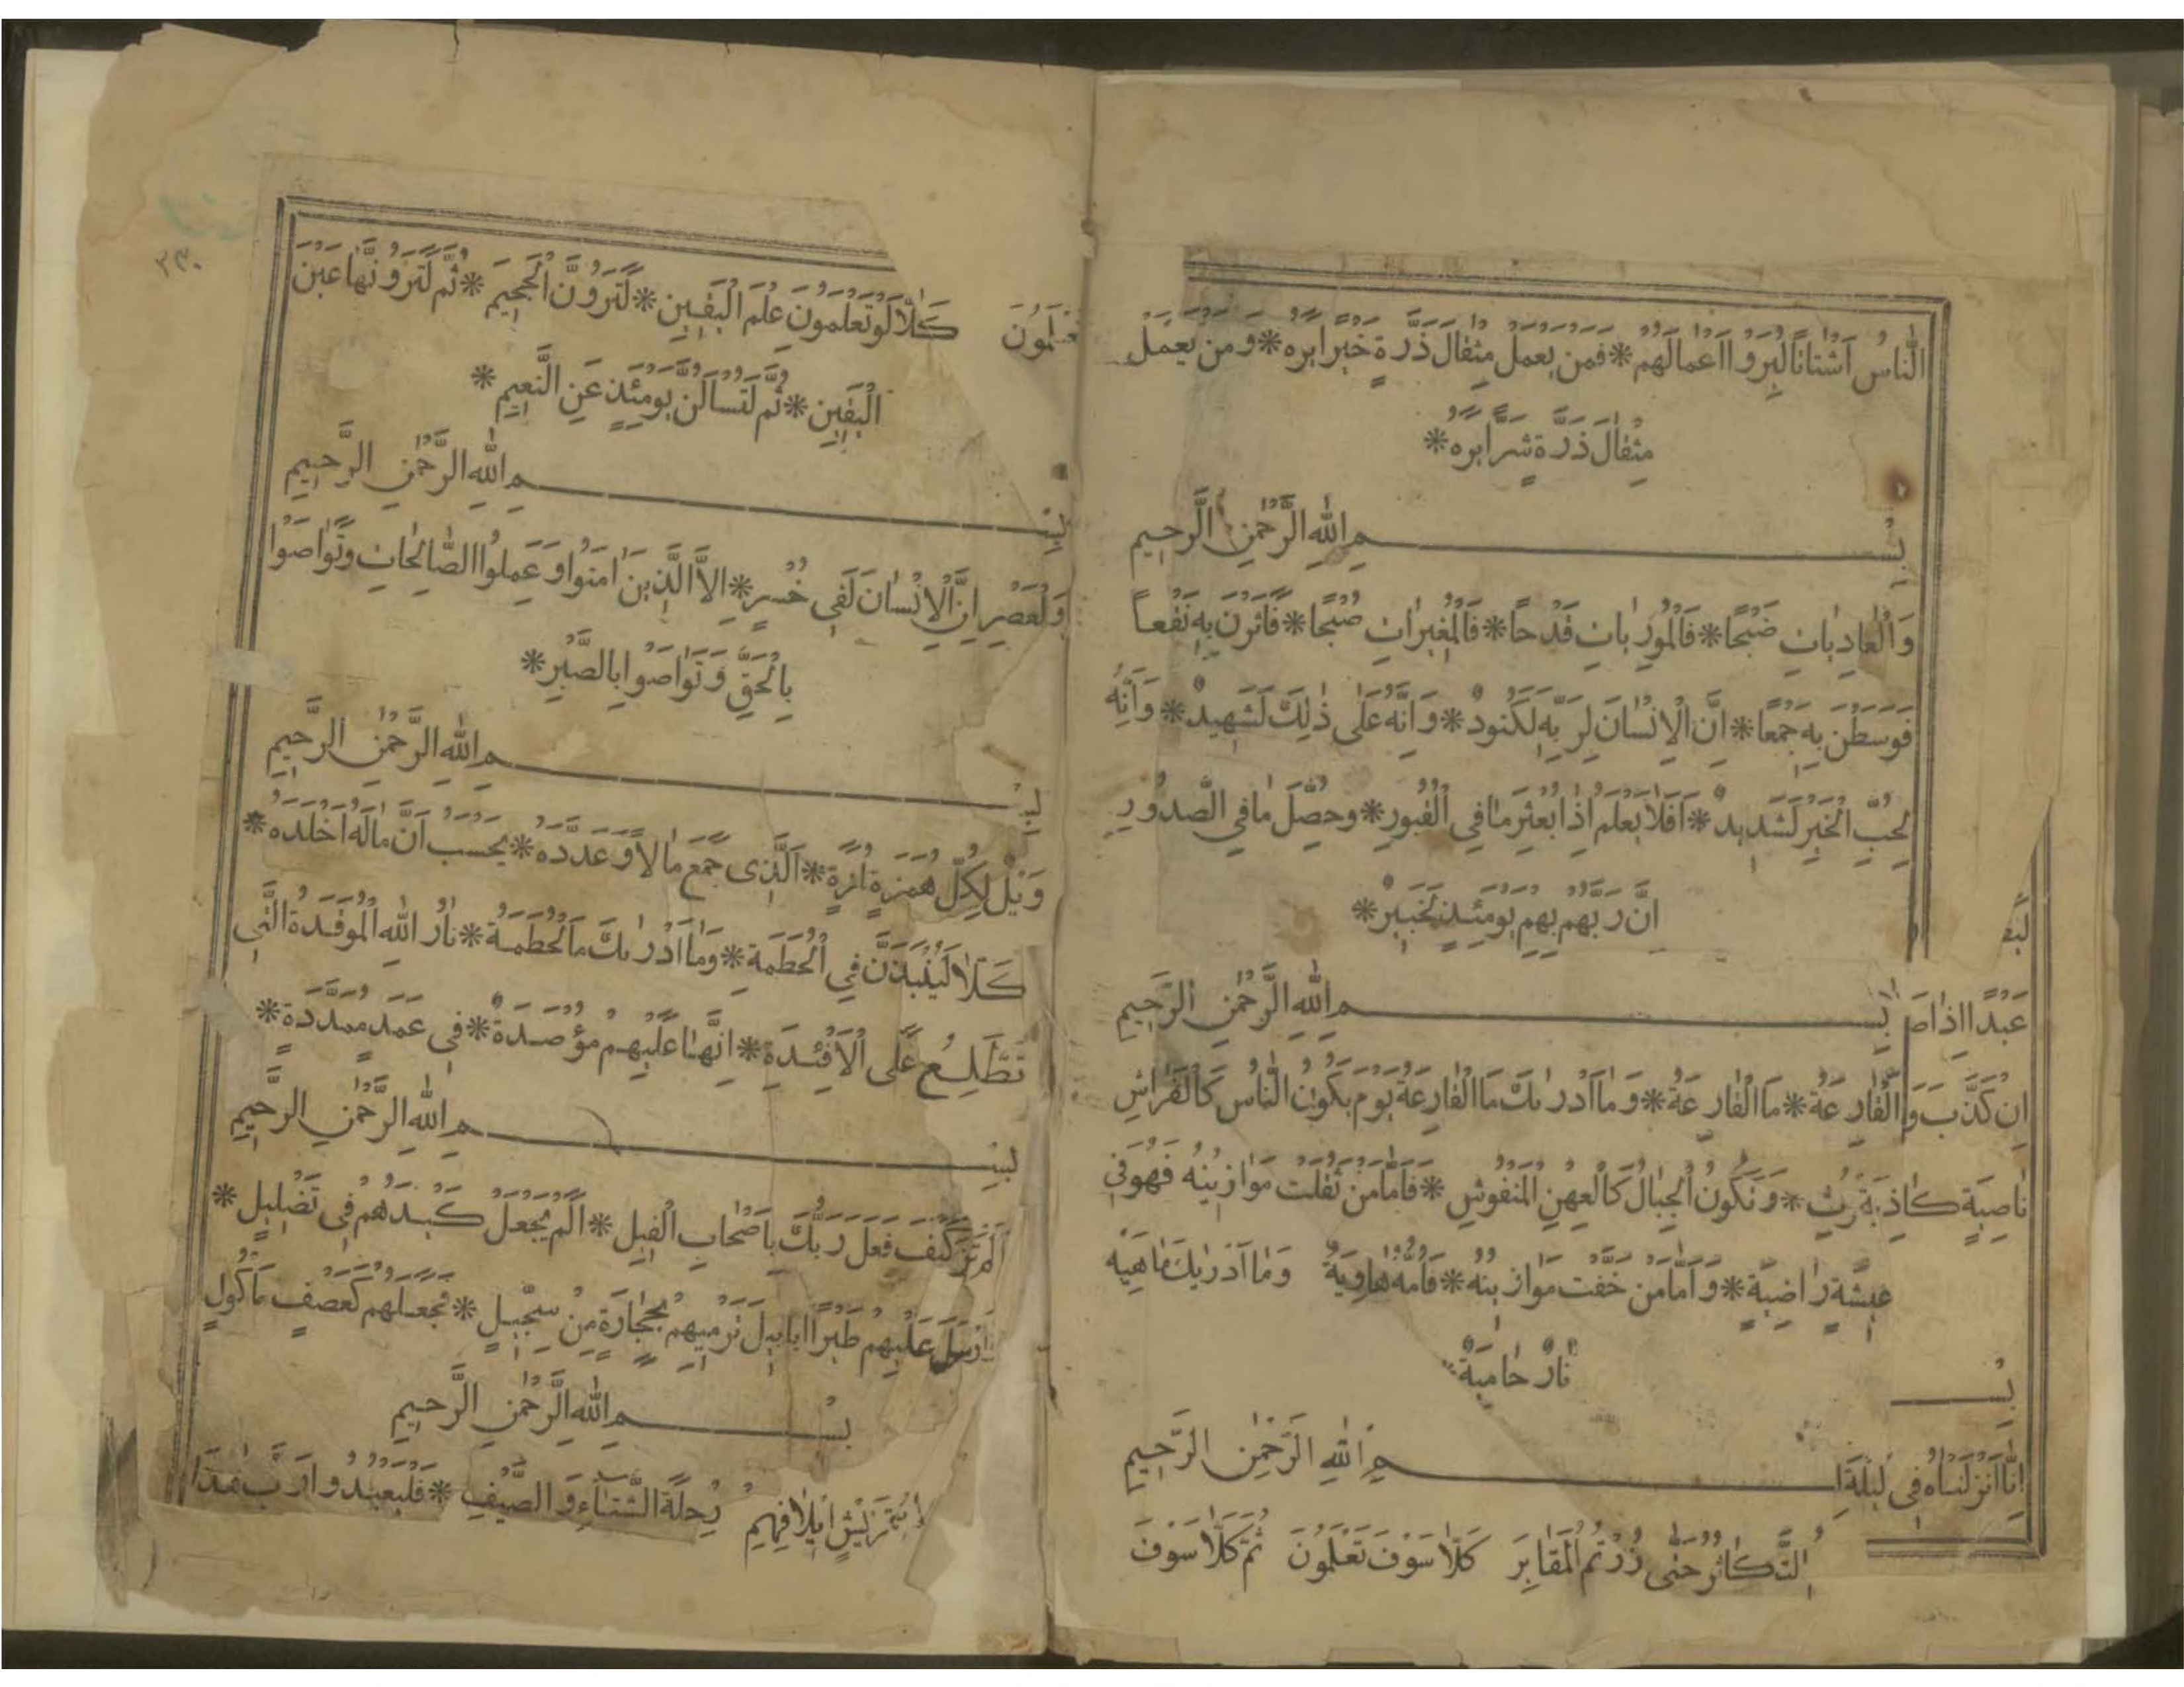 النَّاسُ اَشْتَاتًا لِيُرَوْا اَعْمَالَهُمْ * فَمَنْ يَعْمَلْ مِثْقَالَ ذَرَّةٍ خَيْرًا يَرَهُ * وَمَنْ يَعْمَلْ
مِثْقَالَ ذَرَّةٍ شَرًّا يَرَهُ *
بِسْمِ اللهِ الرَّحْمٰنِ الرَّحِيمِ
وَالْعَادِيَاتِ ضَبْحًا * فَالْمُورِيَاتِ قَدْحًا * فَالْمُغِيرَاتِ صُبْحًا * فَاَثَرْنَ بِهِ نَقْعاً
فَوَسَطْنَ بِهِ جَمْعًا * اِنَّ الْاِنْسَانَ لِرَبِّهِ لَكَنُودٌ * وَاِنَّهُ عَلٰى ذٰلِكَ لَشَهِيدٌ * وَاِنَّهُ
لِحُبِّ الْخَيْرِ لَشَدِيدٌ * اَفَلَا يَعْلَمُ اِذَا بُعْثِرَ مَا فِي الْقُبُورِ * وَحُصِّلَ مَا فِي الصُّدُورِ
اِنَّ رَبَّهُمْ بِهِمْ يَوْمَئِذٍ لَخَبِيرٌ *
عَبْدًا اِذَا صَ بِسْمِ اللهِ الرَّحْمٰنِ الرَّحِيمِ
اِنْ كَذَّبَ وَ اَلْقَارِعَةُ * مَا الْقَارِعَةُ * وَمَا اَدْرٰيكَ مَا الْقَارِعَةُ يَوْمَ يَكُونُ النَّاسُ كَالْفَرَاشِ
نَاصِيَةٍ كَاذِبَةٍ بُثِ * وَتَكُونُ الْجِبَالُ كَالْعِهْنِ الْمَنْفُوشِ * فَاَمَّا مَنْ ثَقُلَتْ مَوَازِينُهُ فَهُوَ فِي
عِيشَةٍ رَاضِيَةٍ * وَاَمَّا مَنْ خَفَّتْ مَوَازِينُهُ * فَاُمُّهُ هَاوِيَةٌ وَمَا اَدْرٰيكَ مَا هِيَهْ
نَارٌ حَامِيَةٌ *
بِسْــ
اِنَّا اَنْزَلْنَاهُ فِي لَيْلَةِ ا مِ اللهِ الرَّحْمٰنِ الرَّحِيمِ
التَّكَاثُرُ حَتّٰى زُرْتُمُ الْمَقَابِرَ كَلَّا سَوْفَ تَعْلَمُونَ ثُمَّ كَلَّا سَوْفَ
٢٣٠
تَعْلَمُونَ كَلَّا لَوْ تَعْلَمُونَ عِلْمَ الْيَقِينِ * لَتَرَوُنَّ الْجَحِيمَ * ثُمَّ لَتَرَوُنَّهَا عَيْنَ
الْيَقِينِ * ثُمَّ لَتُسْاَلُنَّ يَوْمَئِذٍ عَنِ النَّعِيمِ *
بِسْمِ اللهِ الرَّحْمٰنِ الرَّحِيمِ
وَالْعَصْرِ اِنَّ الْاِنْسَانَ لَفِي خُسْرٍ * اِلَّا الَّذِينَ اٰمَنُوا وَعَمِلُوا الصَّالِحَاتِ وَتَوَاصَوْا
بِالْحَقِّ وَتَوَاصَوْا بِالصَّبْرِ *
بِسْمِ اللهِ الرَّحْمٰنِ الرَّحِيمِ
وَيْلٌ لِكُلِّ هُمَزَةٍ لُمَزَةٍ * اَلَّذِي جَمَعَ مَالًا وَعَدَّدَهُ * يَحْسَبُ اَنَّ مَالَهُ اَخْلَدَهُ *
كَلَّا لَيُنْبَذَنَّ فِي الْحُطَمَةِ * وَمَا اَدْرٰيكَ مَا الْحُطَمَةُ * نَارُ اللهِ الْمُوقَدَةُ الَّتِي
تَطَّلِعُ عَلَى الْاَفْئِدَةِ * اِنَّهَا عَلَيْهِمْ مُؤْصَدَةٌ * فِي عَمَدٍ مُمَدَّدَةٍ *
بِسْمِ اللهِ الرَّحْمٰنِ الرَّحِيمِ
اَلَمْ تَرَ كَيْفَ فَعَلَ رَبُّكَ بِاَصْحَابِ الْفِيلِ * اَلَمْ يَجْعَلْ كَيْدَهُمْ فِي تَضْلِيلٍ *
اَرْسَلَ عَلَيْهِمْ طَيْرًا اَبَابِيلَ تَرْمِيهِمْ بِحِجَارَةٍ مِنْ سِجِّيلٍ * فَجَعَلَهُمْ كَعَصْفٍ مَأْكُولٍ
بِسْمِ اللهِ الرَّحْمٰنِ الرَّحِيمِ
قُرَيْشٍ اِيلَافِهِمْ رِحْلَةَ الشِّتَاءِ وَالصَّيْفِ * فَلْيَعْبُدُوا رَبَّ هٰذَا